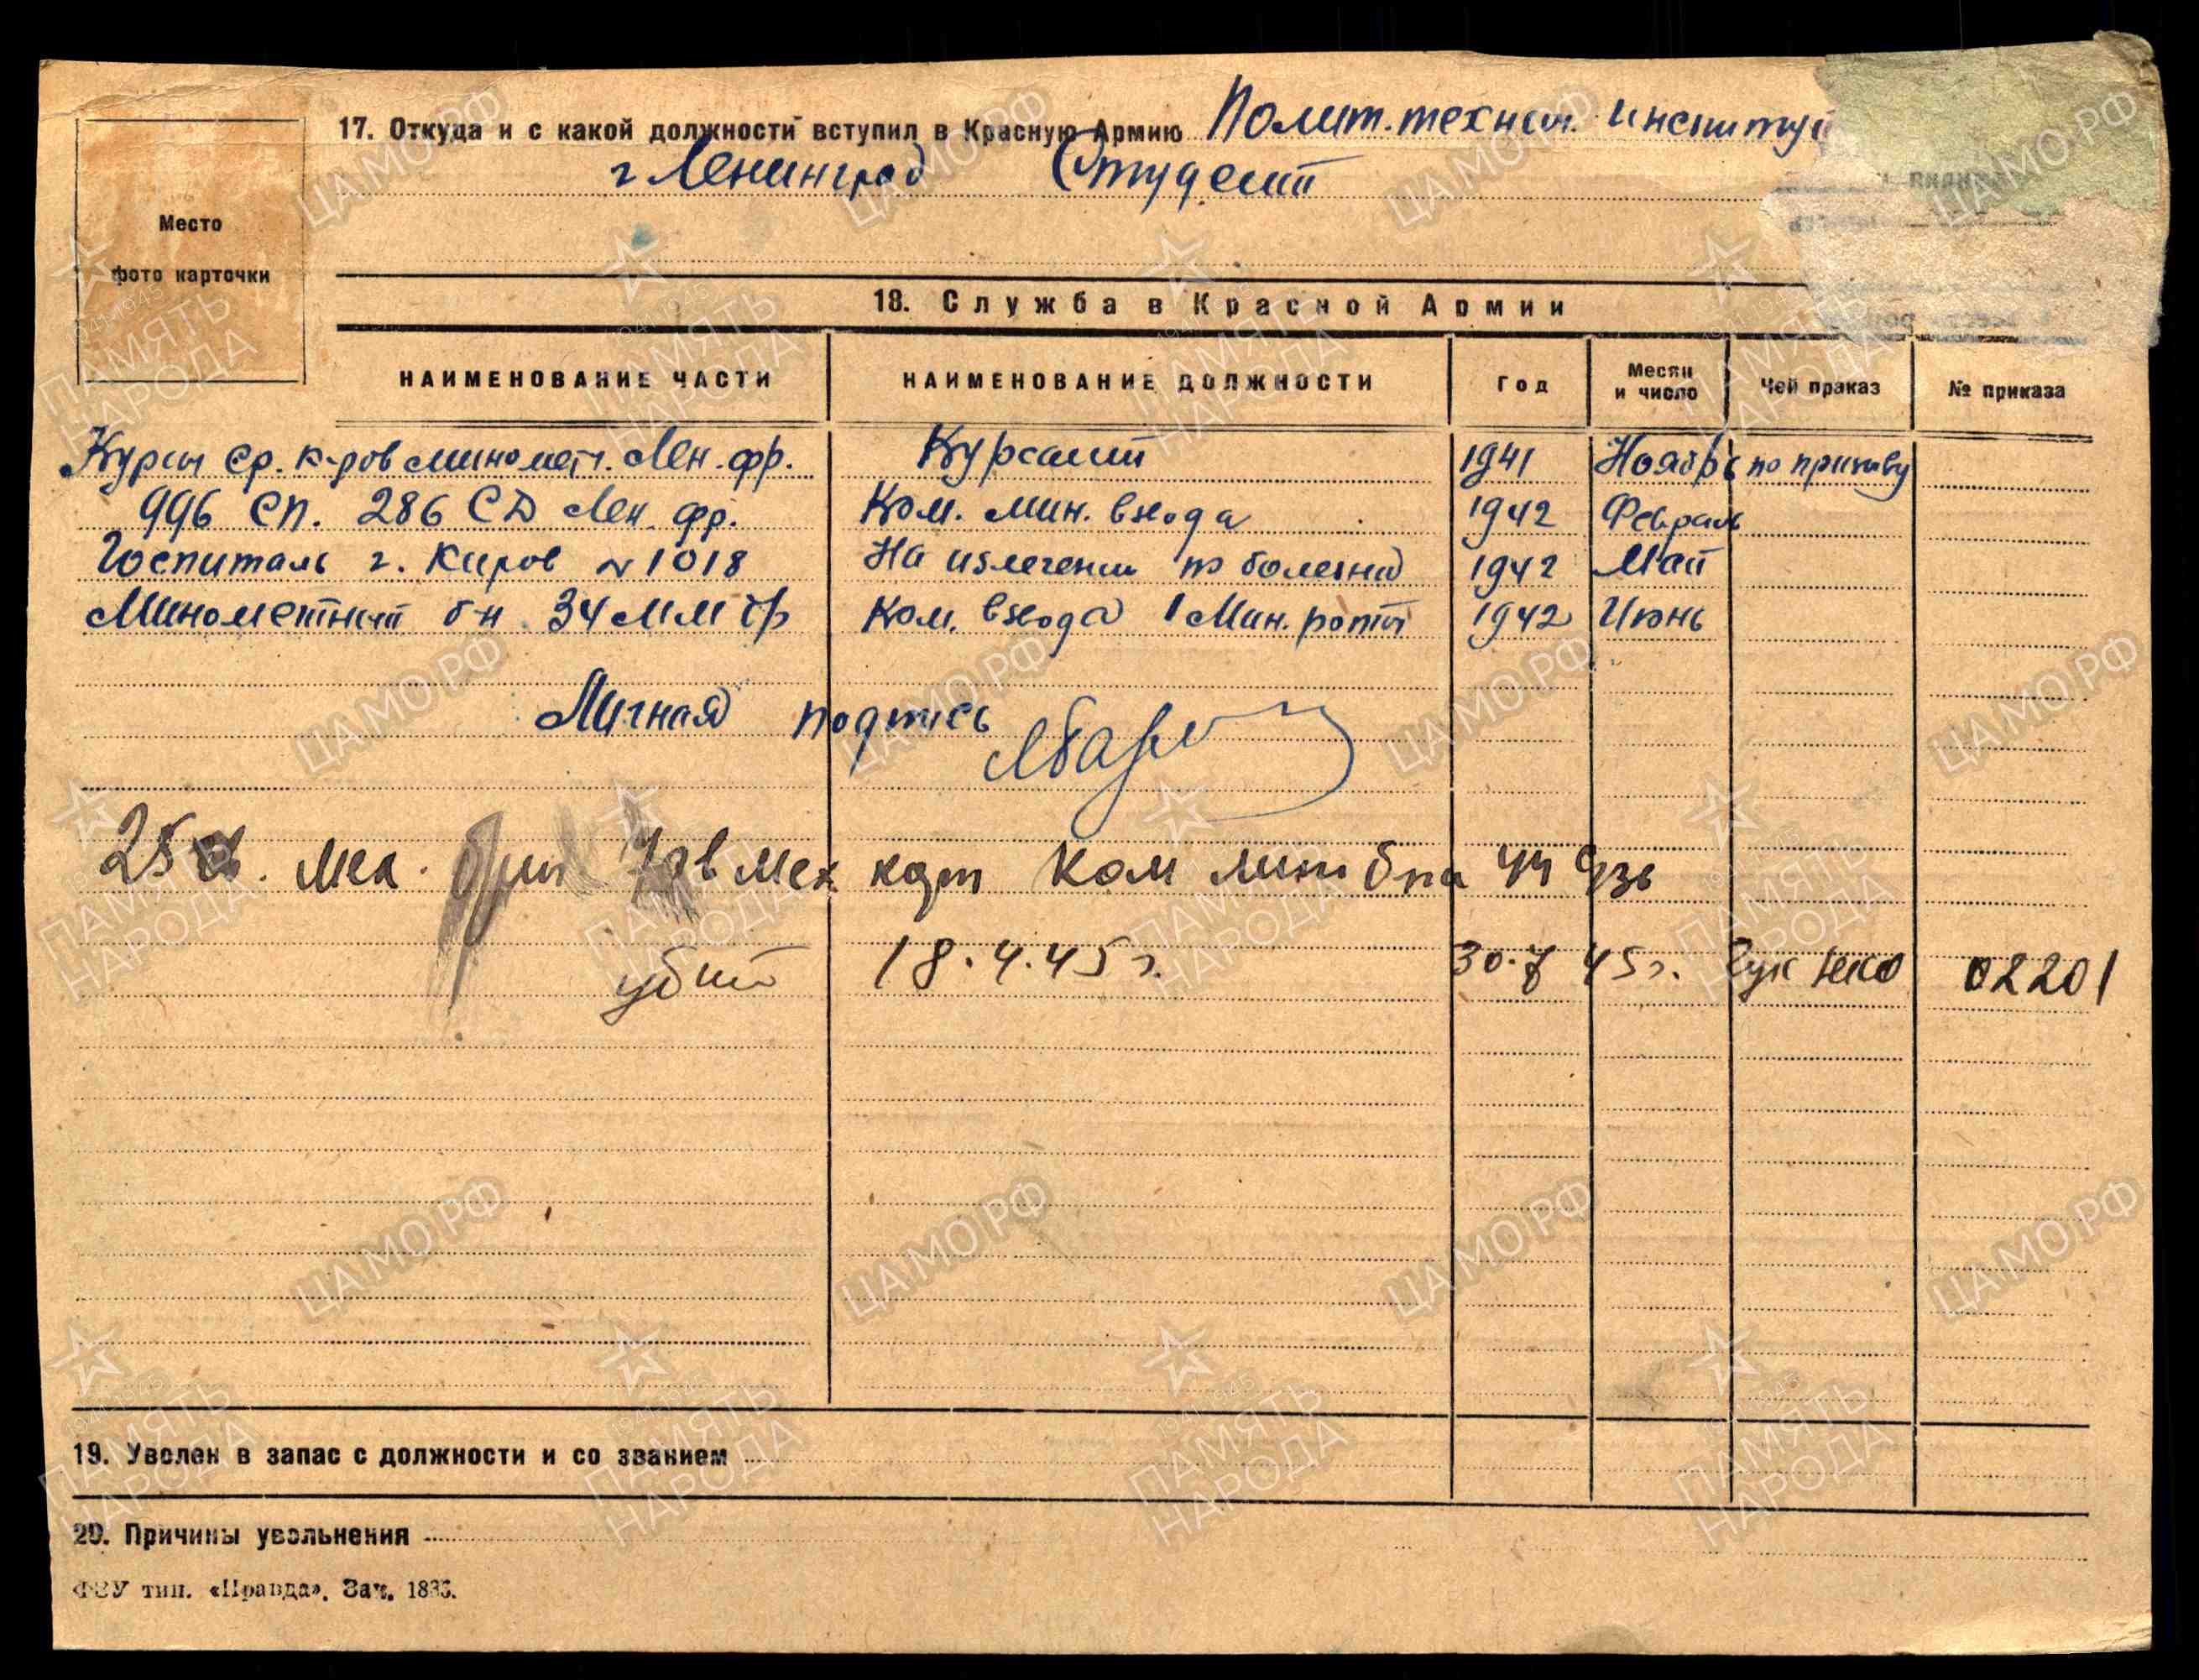 17. Откуда и с какой должности вступил в Красную Армию Полит.технич. институт
г Ленинград Студент
Место
фото карточки
18. Служба в Красной Армии
НАИМЕНОВАНИЕ ЧАСТИ НАИМЕНОВАНИЕ ДОЛЖНОСТИ Год Месяц и число Чей приказ № приказа
Курсы ср. к-ров миномет. Лен. фр. Курсант 1941 Ноябрь по призыву
996 СП. 286 СД Лен. фр. Ком. мин. взвода 1942 Февраль
Госпиталь г. Киров № 1018 На излечении по болезни 1942 Май
Минометный б-н 34 ММ бр Ком. взвода 1 Мин. роты 1942 Июнь
Личная подпись
25 . мех. бриг 7 гв мех корп Ком мин б на 44
убит 18.4.45 г. 30.7 45 г. Гук НКО 02201
19. Уволен в запас с должности и со званием
20. Причины увольнения
ФЗУ тип. «Правда». Зак.
ЦАМО.РФ
1941-1945
ПАМЯТЬ
НАРОДА